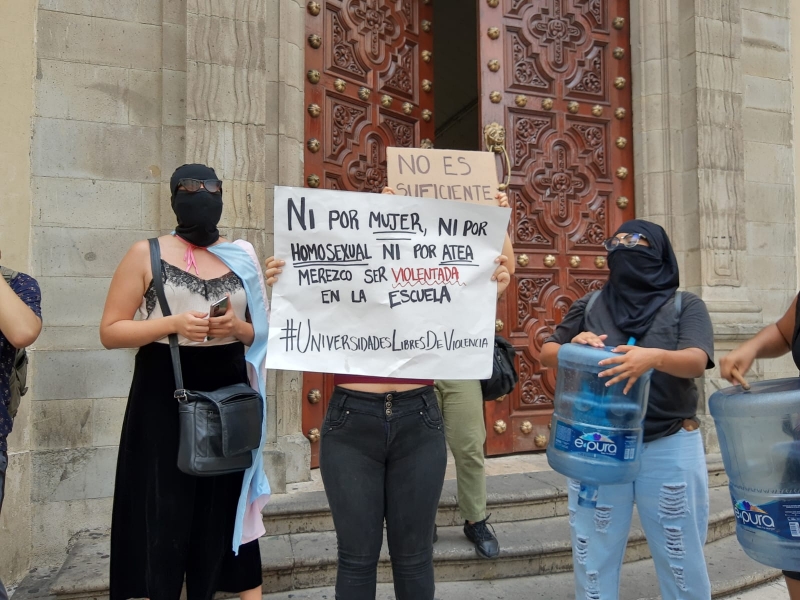 NO ES
SUFICIENTE
NI POR MUJER, NI POR
HOMOSEXUAL NI POR ATEA
MEREZCO SER VIOLENTADA
EN LA ESCUELA
#UNIVERSIDADESLIBRESDEVIOLENCIA
epura
epura